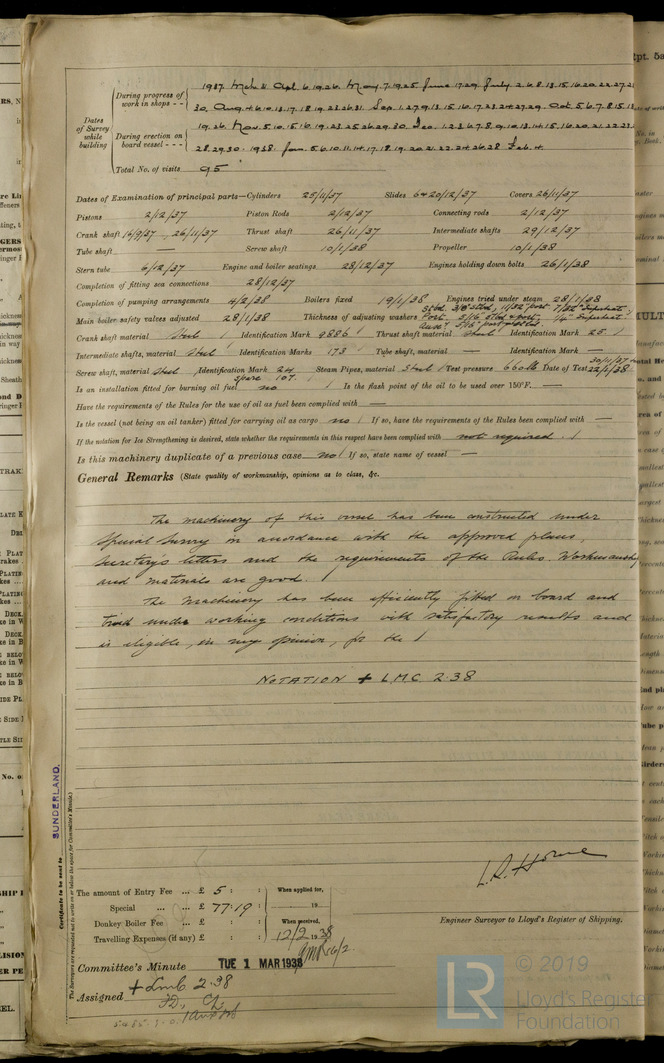 1937. Mch. Apl. 6.19.26. May. 7.19.25. June 17.29. July 2.6.8.13.15.16.20.22.27.
During progress of work in shops - -
30. Aug. 4.6.10.13.17.18.19.23.26.31. Sep. 1.2.7.9.13.15.16.17.23.24.27.29. Oct. 5.6.7.8.15.
Dates of Survey while building
19.26. Nov. 5.10.15.16.19.23.25.26.29.30. Dec. 1.2.3.6.7.8.9.10.13.14.15.16.20.21.22.23
During erection on board vessel - - -
28.29.30. 1938. Jan. 5.6.10.11.14.17.18.19.20.21.22.24.26.28 Feb. 4.
Total No. of visits 95
Dates of Examination of principal parts—Cylinders 25/11/37 Slides 6 & 20/12/37 Covers 26/11/37
Pistons 2/12/37 Piston Rods 2/12/37 Connecting rods 2/12/37
Crank shaft 16/9/37 26/11/37 Thrust shaft 26/11/37 Intermediate shafts 29/12/37
Tube shaft — Screw shaft 10/1/38 Propeller 10/1/38
Stern tube 6/12/37 Engine and boiler seatings 28/12/37 Engines holding down bolts 26/1/38
Completion of fitting sea connections 28/12/37
Completion of pumping arrangements 4/2/38 Boilers fixed 19/1/38 Engines tried under steam 28/1/38
Main boiler safety valves adjusted 28/1/38 Thickness of adjusting washers
Crank shaft material Steel Identification Mark 9886 Thrust shaft material Steel Identification Mark 25
Intermediate shafts, material Steel Identification Marks 173 Tube shaft, material — Identification Mark —
Screw shaft, material Steel Identification Mark 24 Spare 107. Steam Pipes, material Steel Test pressure 660 lb Date of Test 30/11/37 22/1/38
Is an installation fitted for burning oil fuel no Is the flash point of the oil to be used over 150°F. —
Have the requirements of the Rules for the use of oil as fuel been complied with —
Is the vessel (not being an oil tanker) fitted for carrying oil as cargo no If so, have the requirements of the Rules been complied with —
If the notation for Ice Strengthening is desired, state whether the requirements in this respect have been complied with not required.
Is this machinery duplicate of a previous case no If so, state name of vessel —
General Remarks (State quality of workmanship, opinions as to class, &c.
The machinery of this vessel has been constructed under
Special Survey in accordance with the approved plans,
Secretary's letters and the requirements of the Rules. Workmanship
and materials are good.
The machinery has been efficiently fitted on board and
tried under working conditions with satisfactory results and
is eligible, in my opinion, for the
NOTATION + LMC 2.38
SUNDERLAND.
Certificate to be sent to
The Surveyors are requested not to write on or below the space for Committee's Minute.
L. R. Horne
Engineer Surveyor to Lloyd's Register of Shipping.
The amount of Entry Fee ... £ 5 : :
When applied for,
Special ... ... £ 77 : 19 :
19
Donkey Boiler Fee ... £ : :
When received,
Travelling Expenses (if any) £ : :
12/2 1938
Committee's Minute TUE 1 MAR 1938
Assigned + LMC 2.38
FD, CL
LR
© 2019
Lloyd's Register
Foundation